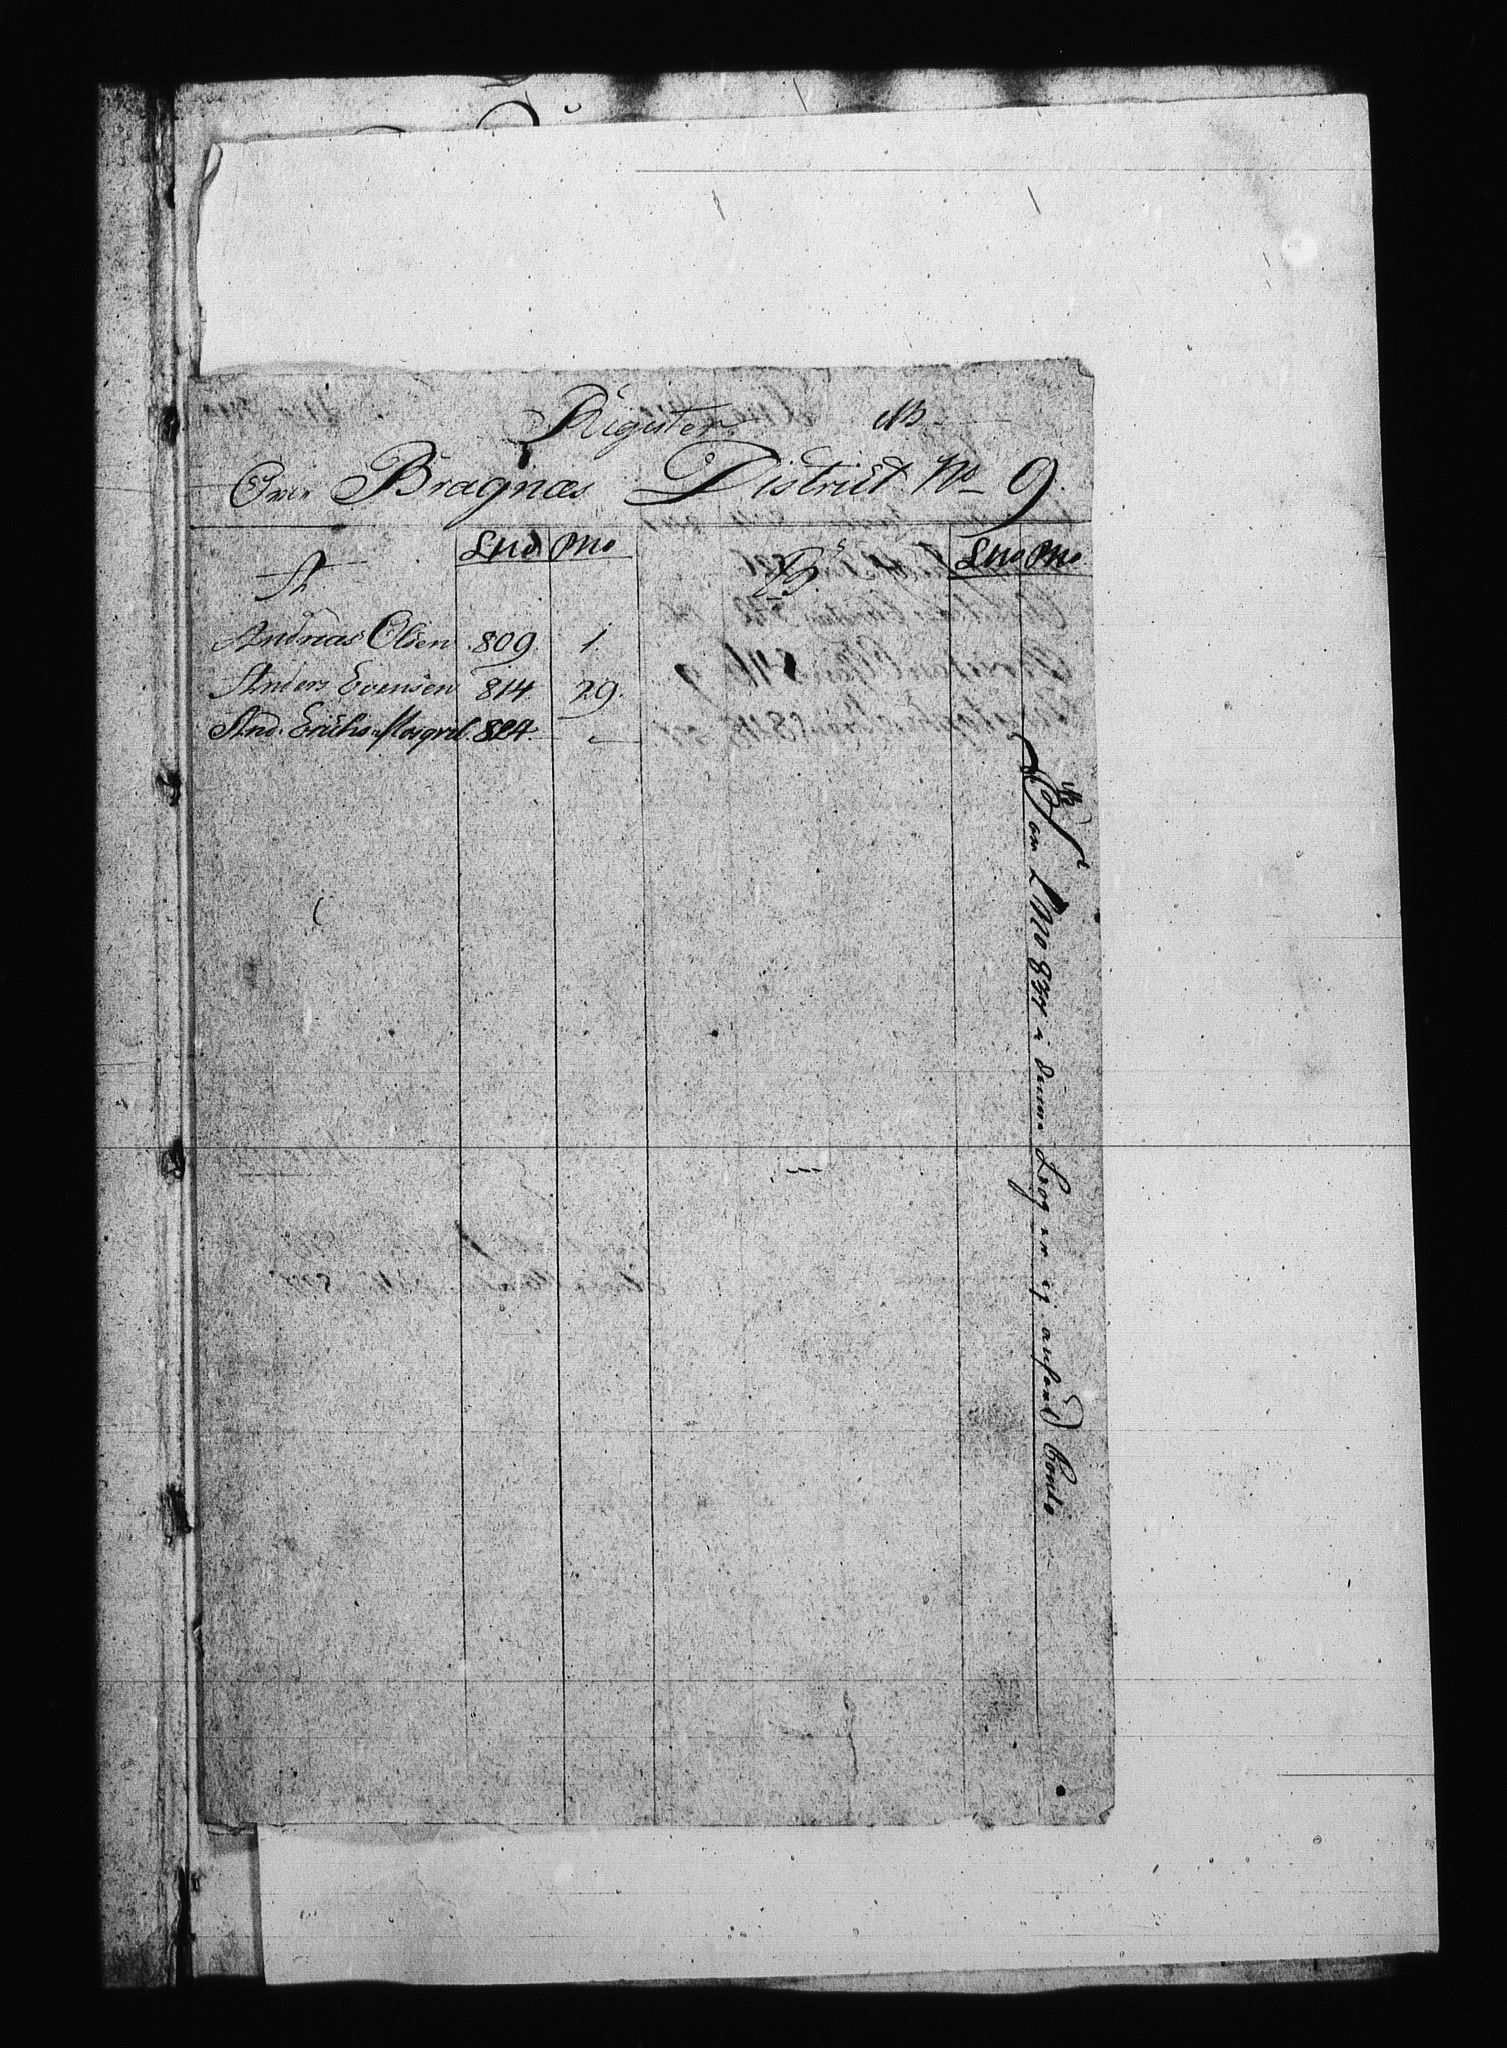 Register. NB
Over Bragnæs District No 9.
A LNo PNo B LNo PNo
Andreas Olsen 809. 1.
Anders Evensen 814 29.
And. Erichs. 824. -
NB
om LNo 837 i denne Bog er ej anført Conto